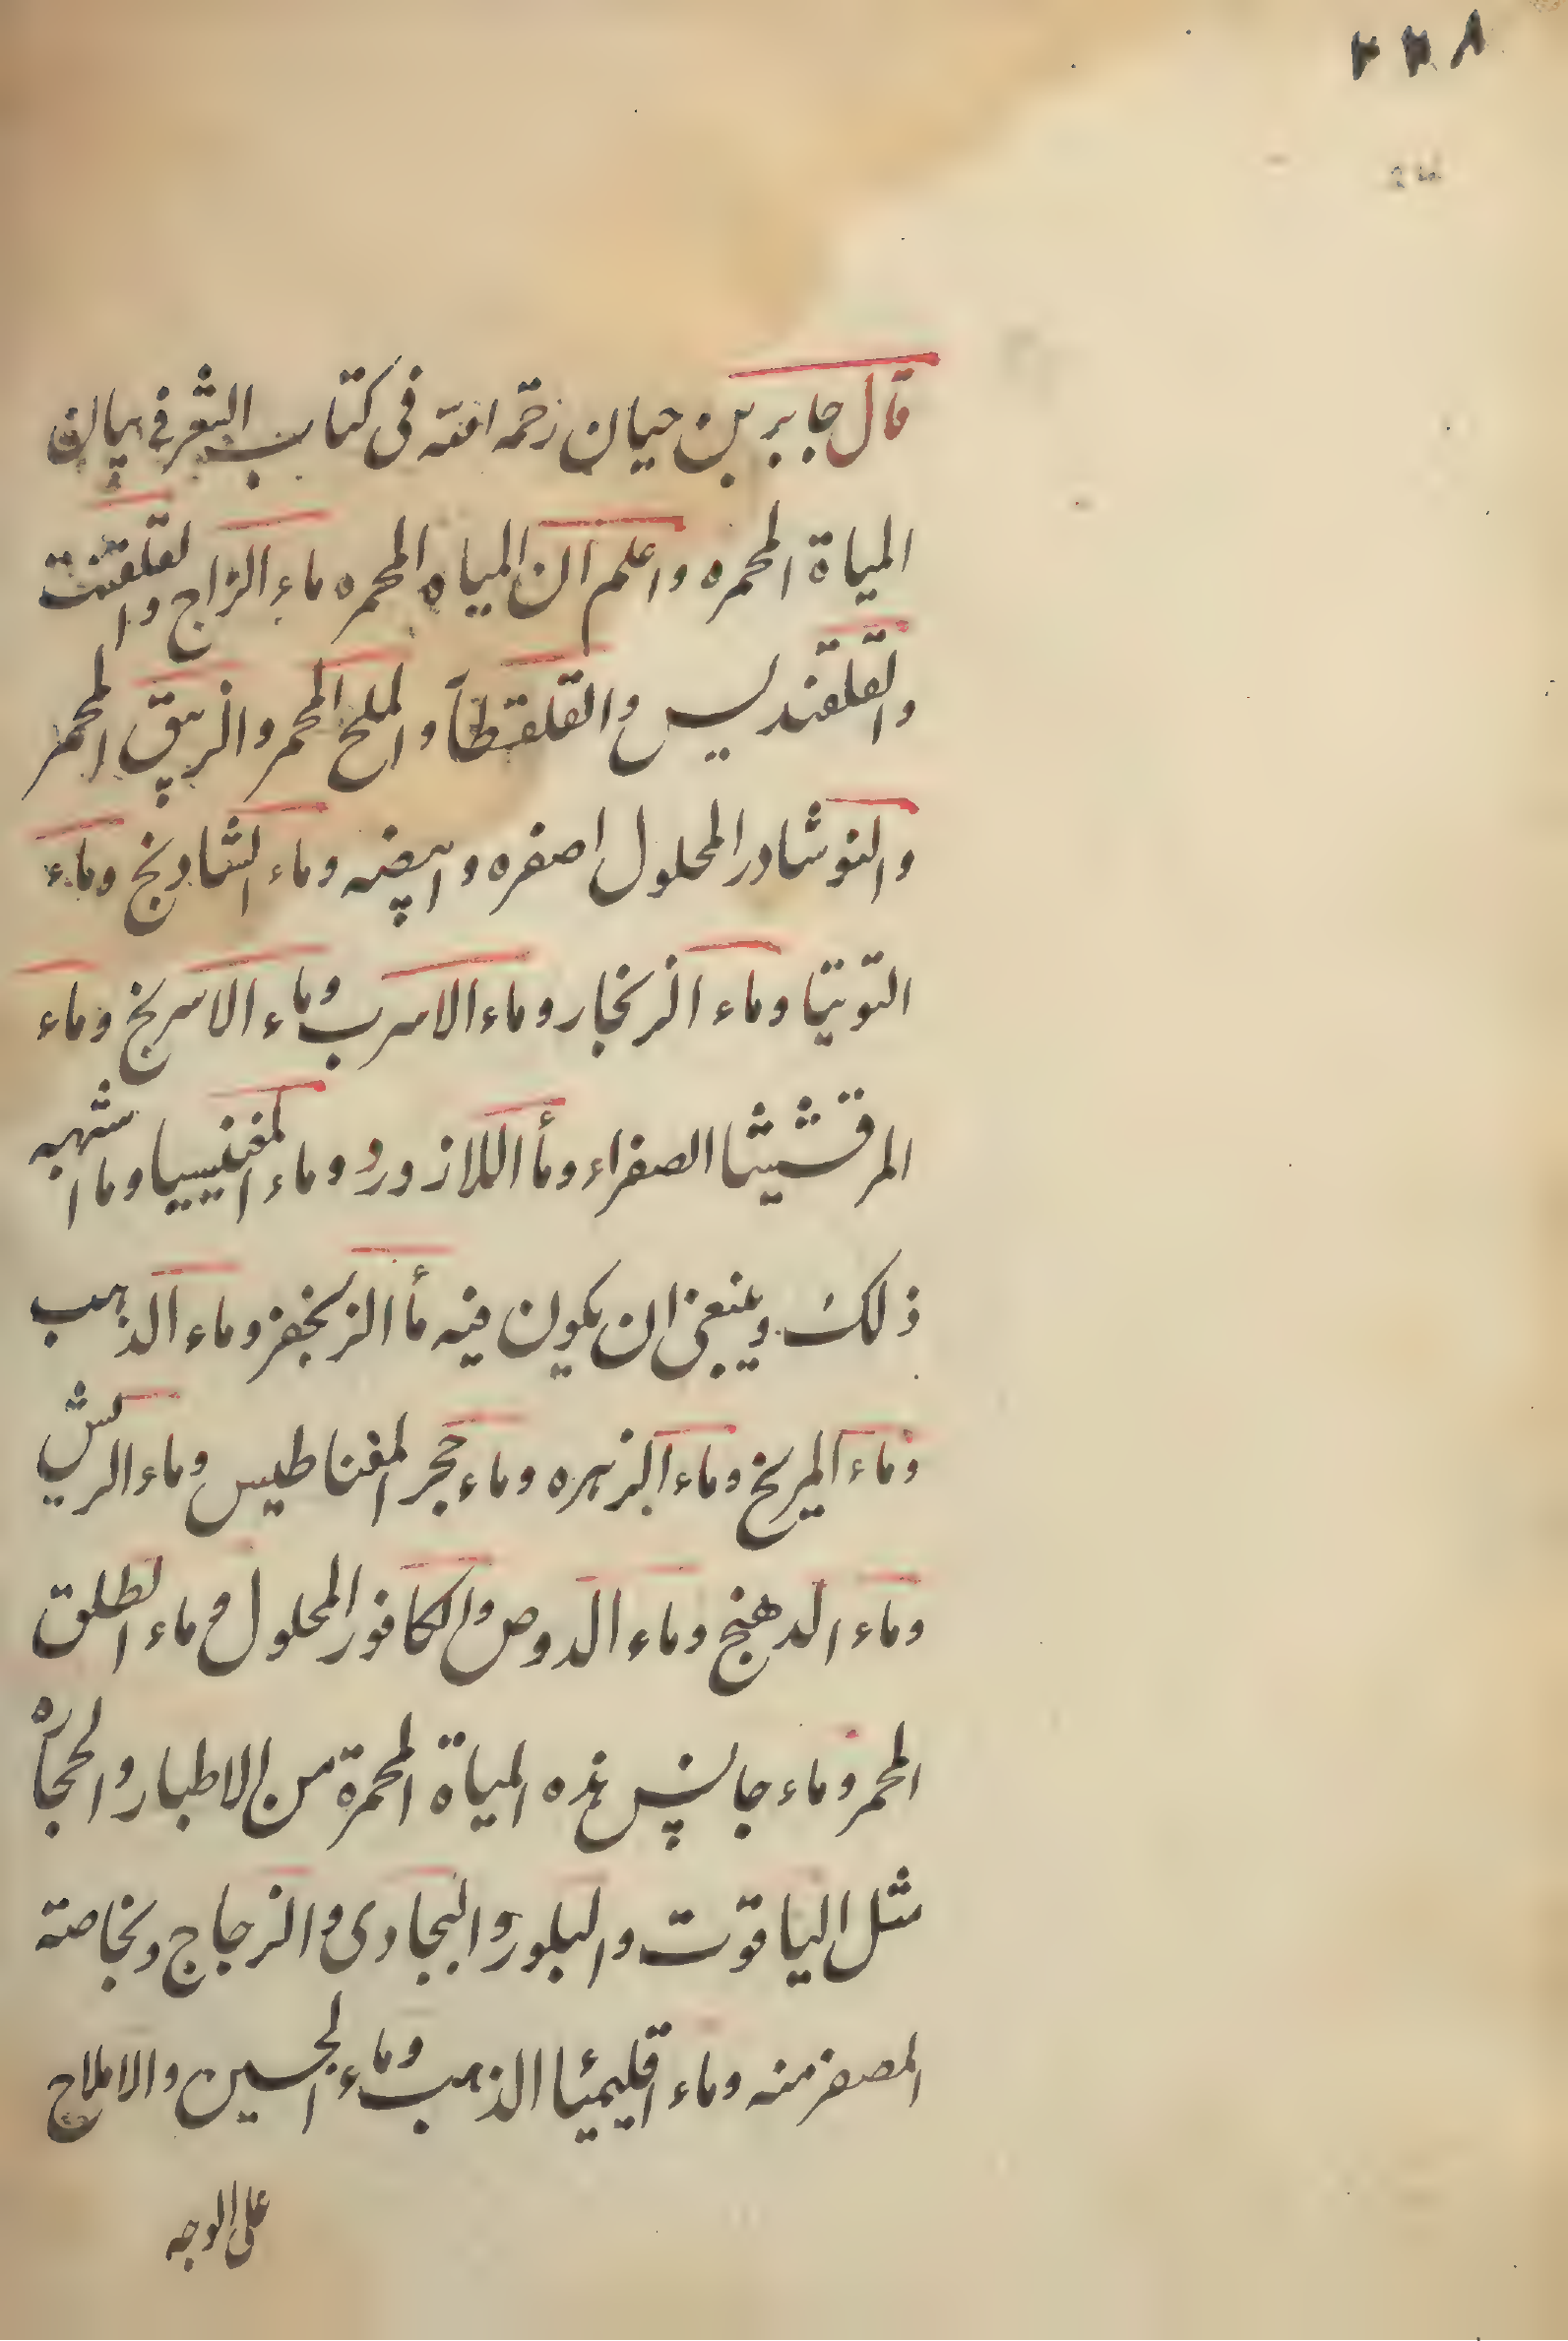 ٢٢٨
قال جابر بن حيان رحمه الله فى كتاب الشعر فى بيان
المياة المحمره واعلم ان المياه المحمره ماء الزاج والقلقنت
والقلقنديس والقلقطأ والملح المحمر والزيبق المحمر
والنوشادر المحلول اصفره وابيضه وماء الشادنج وماء
التوتيا وماء الزنجار وماء الاسرب وماء الاسرنج وماء
المرقشيثا الصفراء ومأ اللازورد وماء المغنيسيا وما اشبه
ذلك وينبغى ان يكون فيه مأ الزنجفر وماء الذهب
وماء المريخ وماء الزهره وماء حجر المغناطيس وماء الريش
وماء الدهنج وماء الدوص والكافور المحلول وماء الطلق
المحمر وماء جانس هذه المياة المحمرة من الاطيار والحجاره
مثل الياقوت والبلور والبجادى والزجاج وبخاصته
المصفر منه وماء اقليميا الذهب وماء الجسين والاملاح
على الوجه